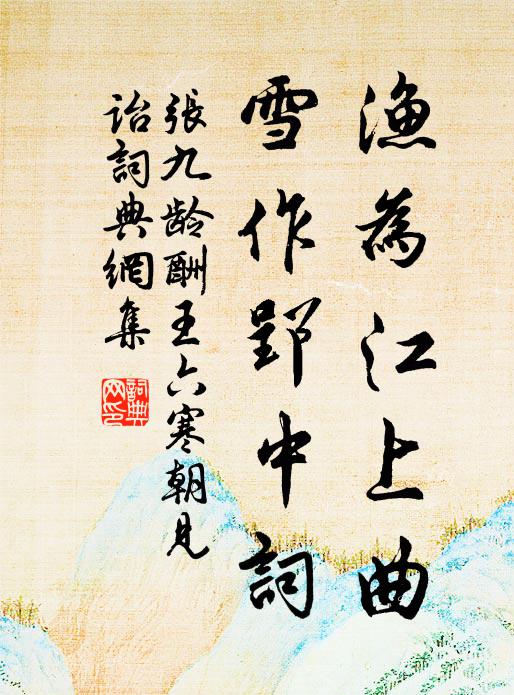 漁為江上曲
雪作郢中詞
張九齡酬王六寒朝見
詒詞典網集
詞典網印